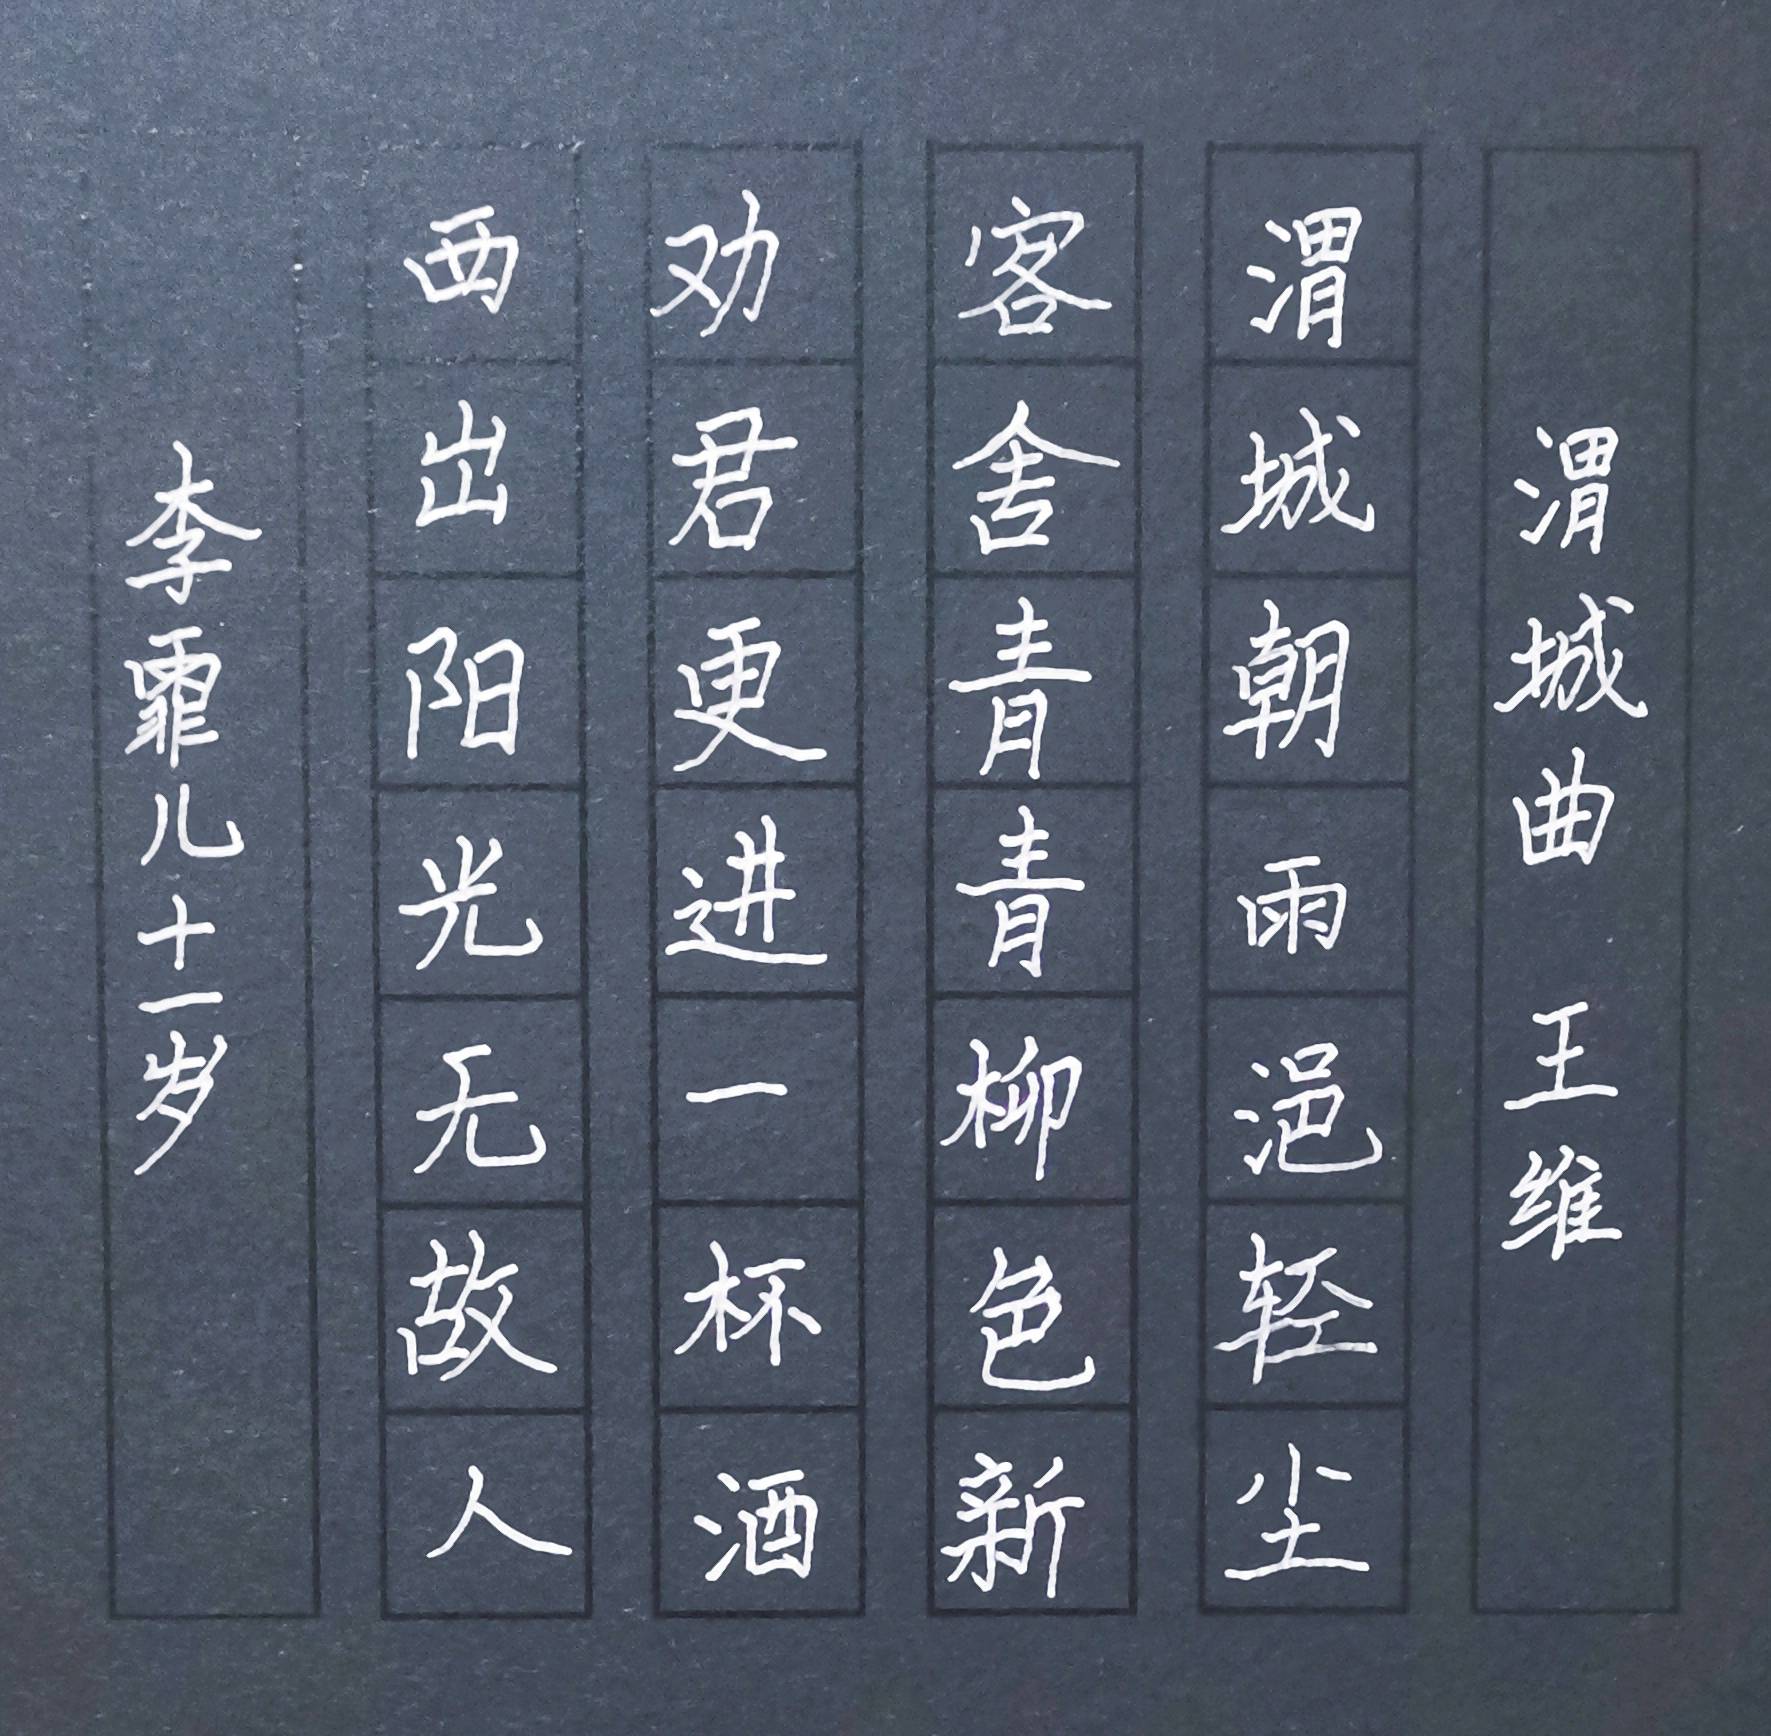 渭城曲 王维
渭城朝雨浥轻尘
客舍青青柳色新
劝君更进一杯酒
西出阳光无故人
李霏儿十一岁